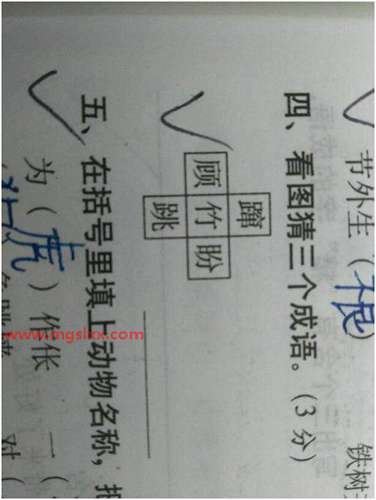 节外生（根） 铁树
四、看图猜三个成语。(3分)
蹿
顾竹盼
跳
五、在括号里填上动物名称，
为（虎）作伥 一（
对（
www.mgslxx.com